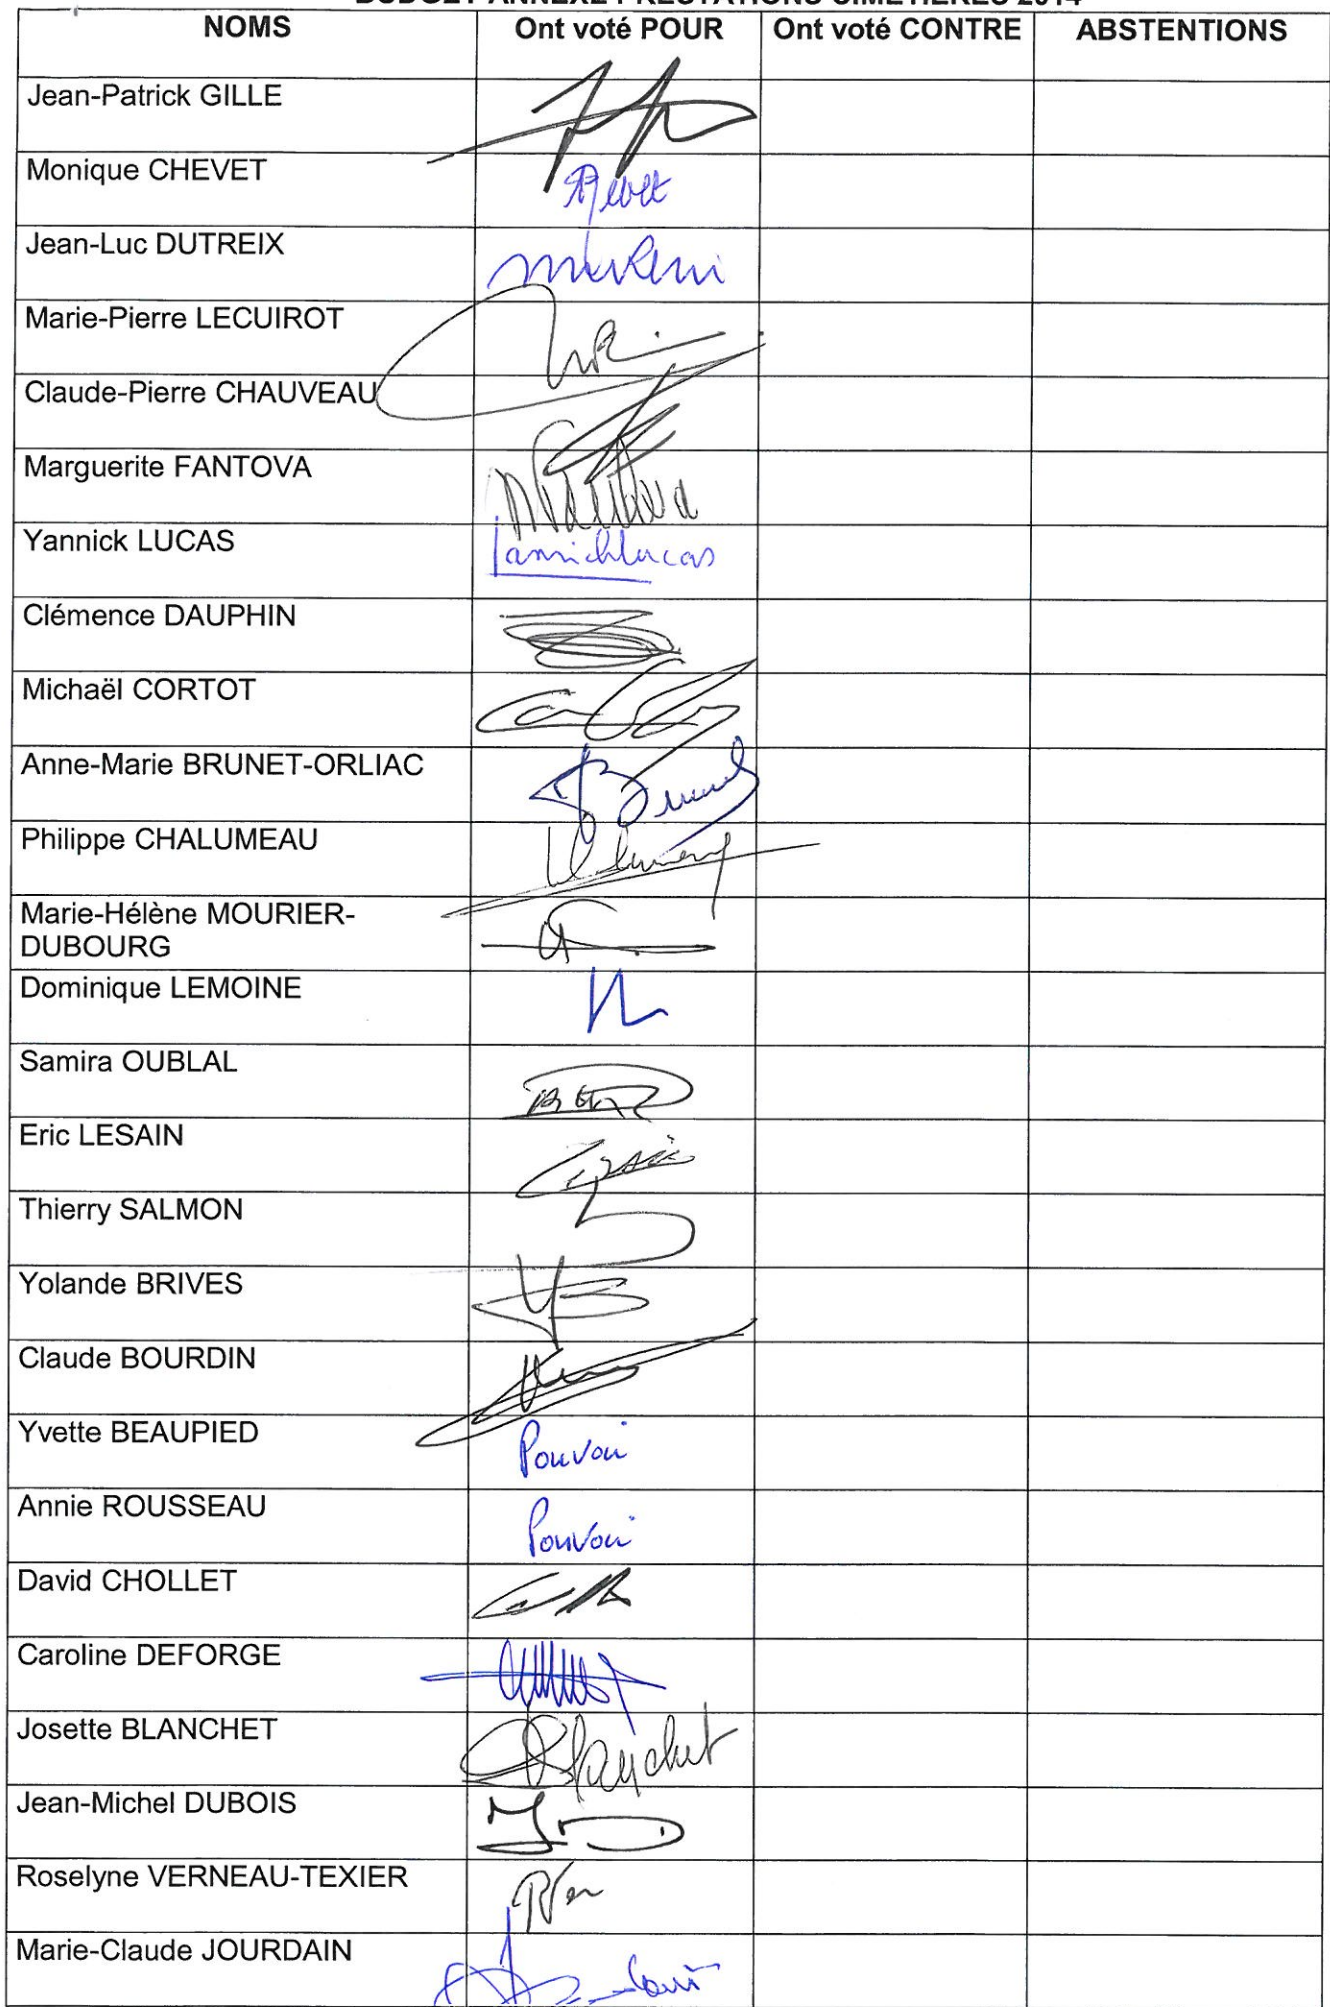 BUDGET ANNEXE PRESTATIONS CIMETIERES 2014
NOMS Ont voté POUR Ont voté CONTRE ABSTENTIONS
Jean-Patrick GILLE
Monique CHEVET
Jean-Luc DUTREIX
Marie-Pierre LECUIROT
Claude-Pierre CHAUVEAU
Marguerite FANTOVA
Yannick LUCAS
Clémence DAUPHIN
Michaël CORTOT
Anne-Marie BRUNET-ORLIAC
Philippe CHALUMEAU
Marie-Hélène MOURIER-
DUBOURG
Dominique LEMOINE
Samira OUBLAL
Eric LESAIN
Thierry SALMON
Yolande BRIVES
Claude BOURDIN
Yvette BEAUPIED Pouvoir
Annie ROUSSEAU Pouvoir
David CHOLLET
Caroline DEFORGE
Josette BLANCHET Blanchet
Jean-Michel DUBOIS
Roselyne VERNEAU-TEXIER
Marie-Claude JOURDAIN